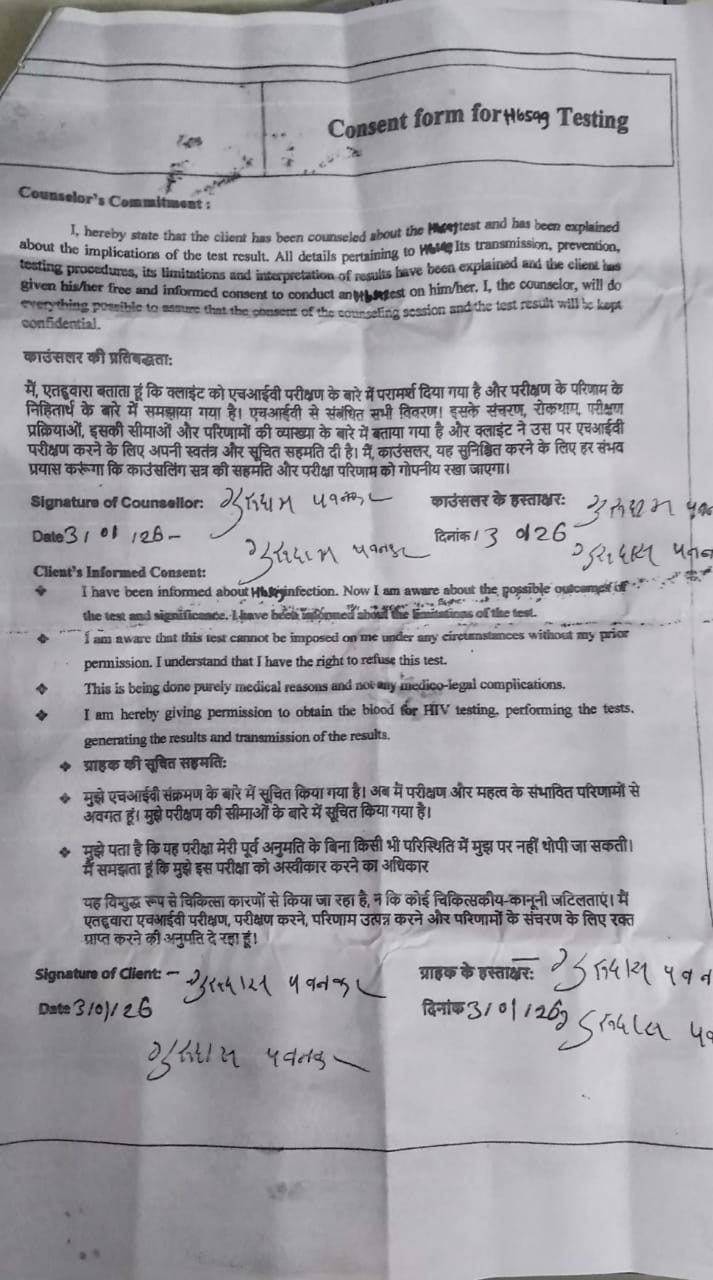 Consent form for HbsAg Testing
Counselor's Commitment :
I, hereby state that the client has been counseled about the HbsAg test and has been explained
about the implications of the test result. All details pertaining to HbsAg Its transmission, prevention,
testing procedures, its limitations and interpretation of results have been explained and the client has
given his/her free and informed consent to conduct an HbsAg test on him/her. I, the counselor, will do
everything possible to assure that the consent of the counseling session and the test result will be kept
confidential.
काउंसलर की प्रतिबद्धता:
मैं, एतद्द्वारा बताता हूं कि क्लाइंट को एचआईवी परीक्षण के बारे में परामर्श दिया गया है और परीक्षण के परिणाम के
निहितार्थ के बारे में समझाया गया है। एचआईवी से संबंधित सभी विवरण। इसके संचरण, रोकथाम, परीक्षण
प्रक्रियाओं, इसकी सीमाओं और परिणामों की व्याख्या के बारे में बताया गया है और क्लाइंट ने उस पर एचआईवी
परीक्षण करने के लिए अपनी स्वतंत्र और सूचित सहमति दी है। मैं, काउंसलर, यह सुनिश्चित करने के लिए हर संभव
प्रयास करूंगा कि काउंसलिंग सत्र की सहमति और परीक्षा परिणाम को गोपनीय रखा जाएगा।
Signature of Counsellor: काउंसलर के हस्ताक्षर:
Date 31 01 126 - दिनांक 13 0126
Client's Informed Consent:
❖ I have been informed about HbsAg infection. Now I am aware about the possible outcomes of
the test and significance. I have been informed about the limitations of the test.
❖ I am aware that this test cannot be imposed on me under any circumstances without my prior
permission. I understand that I have the right to refuse this test.
❖ This is being done purely medical reasons and not any medico-legal complications.
❖ I am hereby giving permission to obtain the blood for HIV testing, performing the tests,
generating the results and transmission of the results.
❖ ग्राहक की सूचित सहमति:
❖ मुझे एचआईवी संक्रमण के बारे में सूचित किया गया है। अब मैं परीक्षण और महत्व के संभावित परिणामों से
अवगत हूं। मुझे परीक्षण की सीमाओं के बारे में सूचित किया गया है।
❖ मुझे पता है कि यह परीक्षा मेरी पूर्व अनुमति के बिना किसी भी परिस्थिति में मुझ पर नहीं थोपी जा सकती।
मैं समझता हूं कि मुझे इस परीक्षा को अस्वीकार करने का अधिकार
यह विशुद्ध रूप से चिकित्सा कारणों से किया जा रहा है, न कि कोई चिकित्सकीय-कानूनी जटिलताएं। मैं
एतद्द्वारा एचआईवी परीक्षण, परीक्षण करने, परिणाम उत्पन्न करने और परिणामों के संचरण के लिए रक्त
प्राप्त करने की अनुमति दे रहा हूं।
Signature of Client: - ग्राहक के हस्ताक्षर:
Date 31/01/26 दिनांक 31/01/26